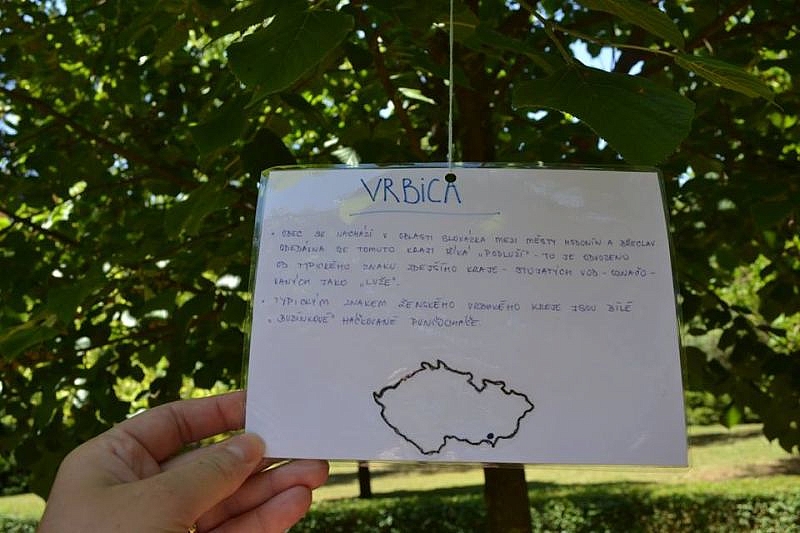 VRBICA
• OBEC SE NACHÁZÍ V OBLASTI SLOVÁCKA MEZI MĚSTY HODONÍN A BŘECLAV
ODEDÁVNA SE TOMUTO KRAJI ŘÍKÁ „PODLUŽÍ" - TO JE ODVOZENO
OD TYPICKÉHO ZNAKU ZDEJŠÍHO KRAJE - STOJATÝCH VOD - OZNAČO-
VANÝCH JAKO „LUŽE".
• TYPICKÝM ZNAKEM ŽENSKÉHO VRBICKÉHO KROJE JSOU BÍLÉ
„BUBÍNKOVÉ" HÁČKOVANÉ PUNČOCHÁČE.